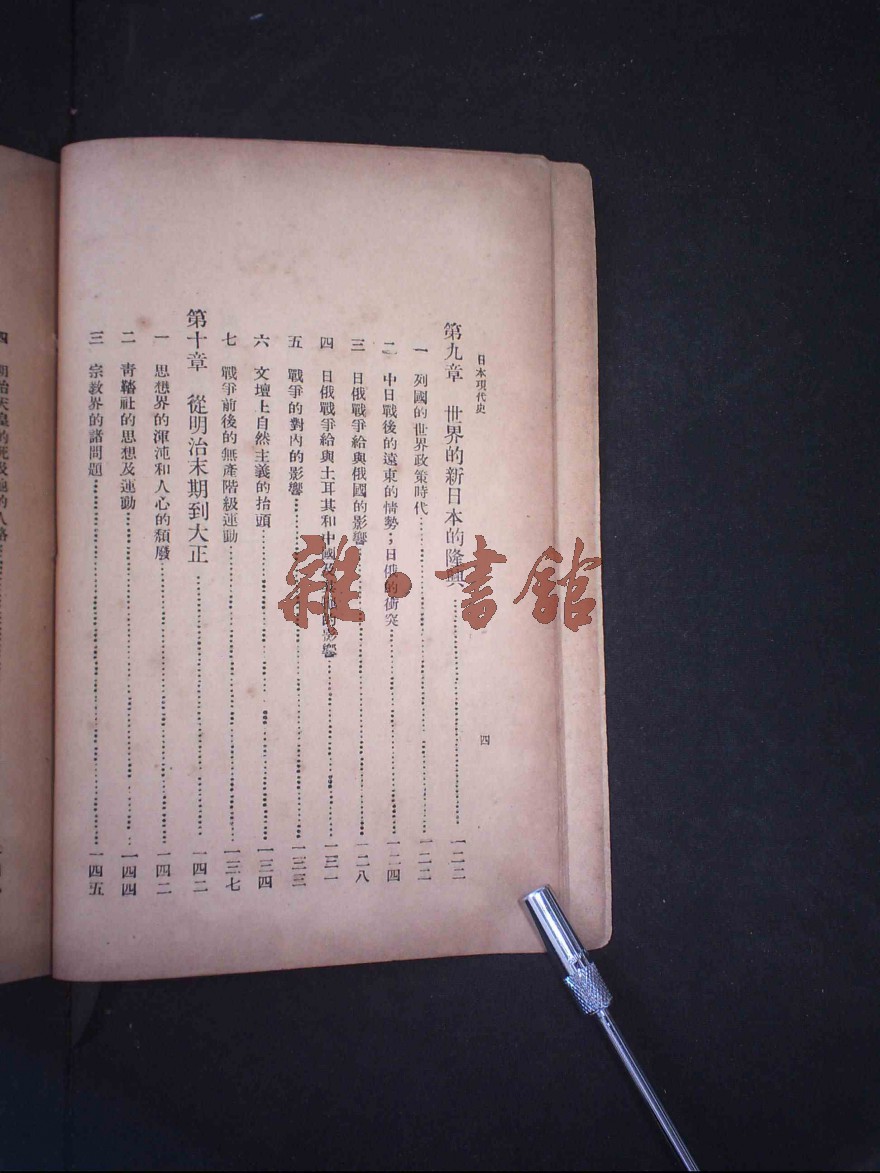 日本現代史
四
第九章 世界的新日本的隆興……一二二
一 列國的世界政策時代……一二二
二 中日戰後的遠東的情勢；日俄的衝突……一二四
三 日俄戰爭給與俄國的影響……一二八
四 日俄戰爭給與土耳其和中國及的影響……一三一
五 戰爭的對內的影響……一三三
六 文壇上自然主義的抬頭……一三四
七 戰爭前後的無產階級運動……一三七
第十章 從明治末期到大正……一四二
一 思想界的渾沌和人心的頹廢……一四二
二 青鞜社的思想及運動……一四四
三 宗教界的諸問題……一四五
四 明治天皇的死及他的人格
雜·書館